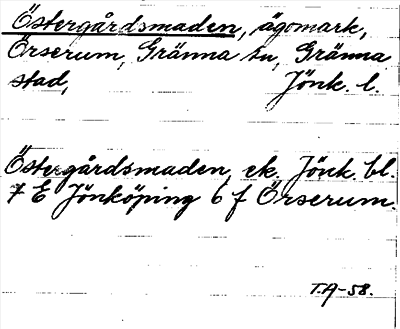 Östergårdsmaden, ägomark,
Örserum, Gränna sn, Gränna
stad, Jönk. l.
Östergårdsmaden, ek. Jönk. bl.
7 E Jönköping 6 f Örserum.
T.A-58.